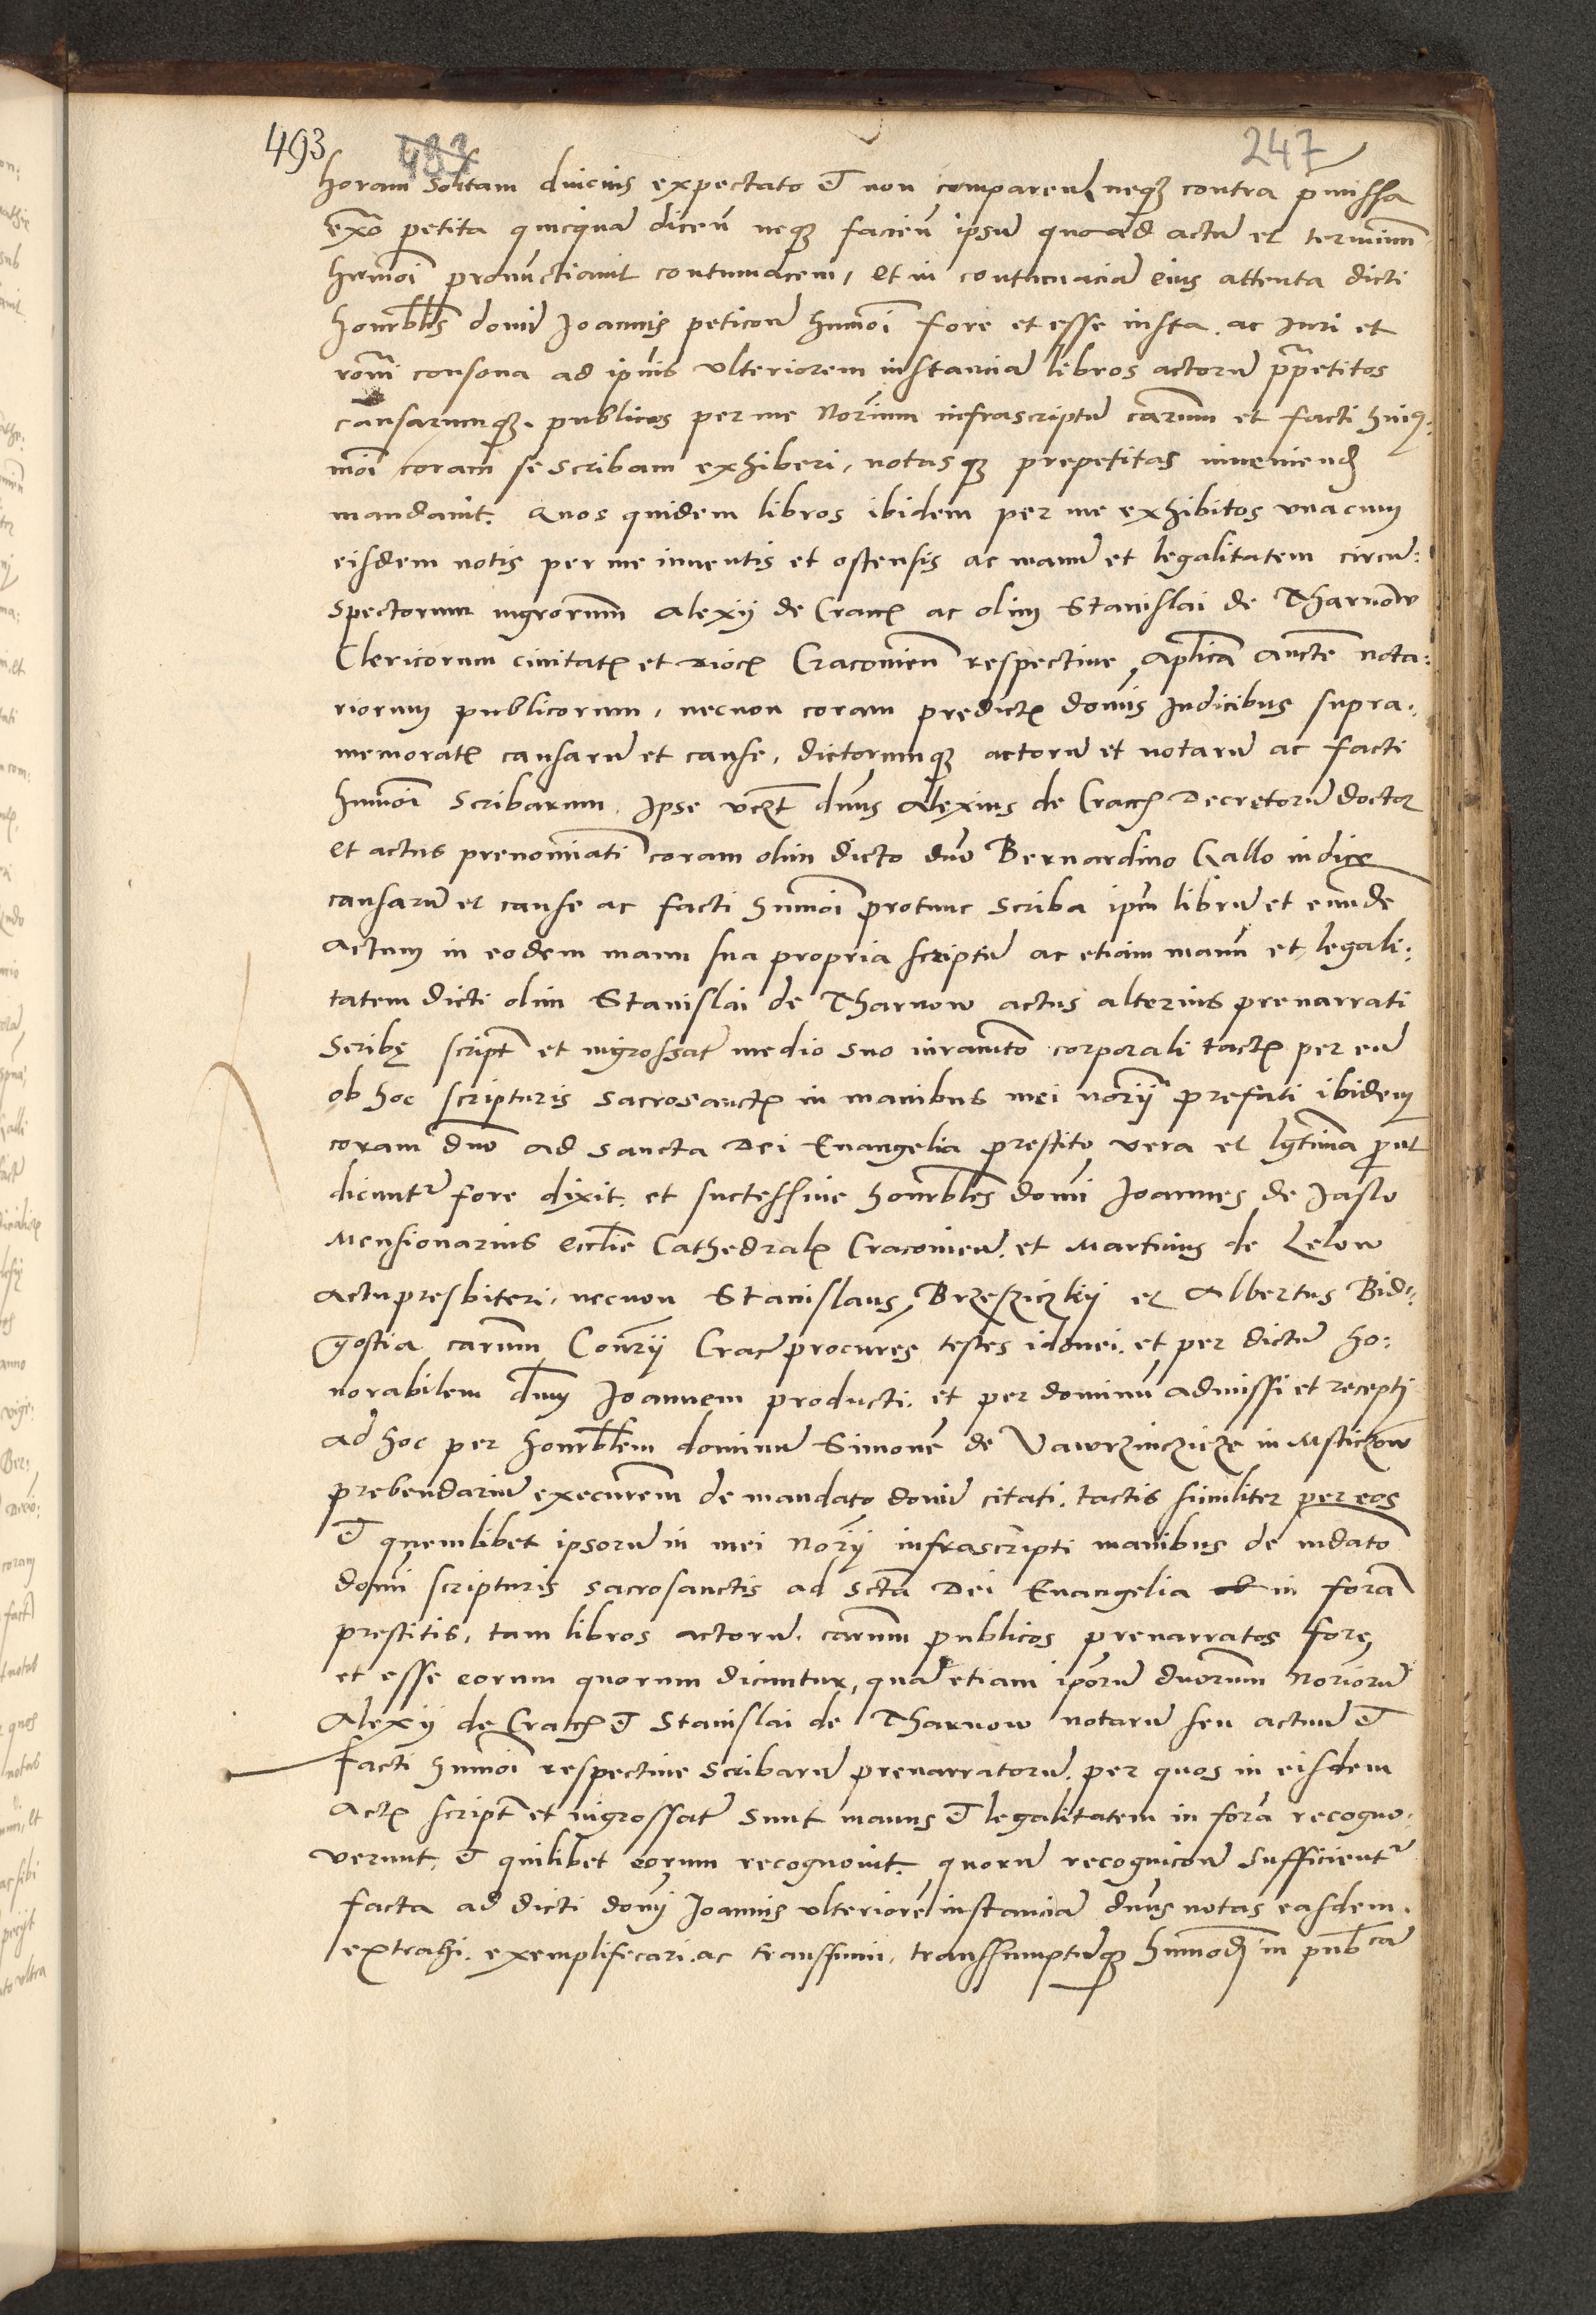 493 493 247
horam solitam diucius expectato et non comparenti neque contra pmissa
exo petita quicquam dicen neque facien ipsum quoad actum et terminum
humoi pronunctiauit contumacem, et in contumaciam eius attenta dicti
honrblis domi Joannis peticone humoi fore et esse iusta. ac Juri et
romi consona ad ipius vlteriorem instanciam libros actorum prpetitos
causarumque. publicos per me Norium infrascriptum carum et facti huius-
moi coram se scribam exhiberi, notasque prepetitas inueniend
mandauit. Quos quidem libros ibidem per me exhibitos vnacum
eisdem notis per me inuentis et ostensis ac manum et legalitatem circum:
spectorum mgrorum Alexij de Cracca ac olim Stanislai de Tharnow
Clericorum ciuitatis et dioc Cracouien respectiue, Aplica aucte nota:
riorum publicorum, necnon coram predictis domis Judicibus supra-
memoratis causarum et cause, dictorumque actorum et notarum ac facti
humoi scribarum. Ipse vczt dnus Alexius de Cracca Decretorum doctor
et actus prenominati coram olim dicto dno Bernardino Gallo iudice
causarum et cause ac facti humoi protunc scriba ipm librum et eumde
Actum in eodem manu sua propria scriptum ac etiam manu et legali:
tatem dicti olim Stanislai de Tharnow actus alterius prenarrati
Scribę script et ingrossat medio suo iuramto corporali tactis per eum
ob hoc scripturis sacrosanctis in manibus mei norij prefati ibidem
coram dno ad sancta Dei Euangelia prestito vera et lgtima prout
dicuntur fore dixit. et successiue honrbles domi Joannes de Jaslo
Mensionarius ecclie Cathedralis Cracouien. et Martinus de Lelow
actu presbiteri, necnon Stanislaus Brzesziczkij et Albertus Bid-
gostia carum Conrij Crac procures testes idonei. et per dictum ho:
norabilem dnum Joannem producti. et per dominum admissi et recepti
ad hoc per honrblem dominum Simone de Vawrzinczicze in Msticzow
prebendarium executrem de mandato domi citati. tactis similiter per eos
et quemlibet ipsorum in mei Norij infrascripti manibus de mdato
domi scripturis sacrosanctis ad scta Dei Euangelia in fora
prestitis, tam libros actorum. carum publicos prenarratos fore
et esse eorum quorum dicuntur, quam etiam iporum duorum Noriorum
Alexij de Cracca et Stanislai de Tharnow notarum seu actuum et
facti humoi respectiue scribarum prenarratorum. per quos in eisdem
actis script et ingrossat sunt manus et legalitatem in fora recogno-
uerunt, et quilibet eorum recognouit. quorum recognicone sufficienter
facta ad dicti domi Joannis vlteriorem instanciam dnus notas easdem.
extrahi. exemplificari. ac transsumi, transsumptumque humodi in publca